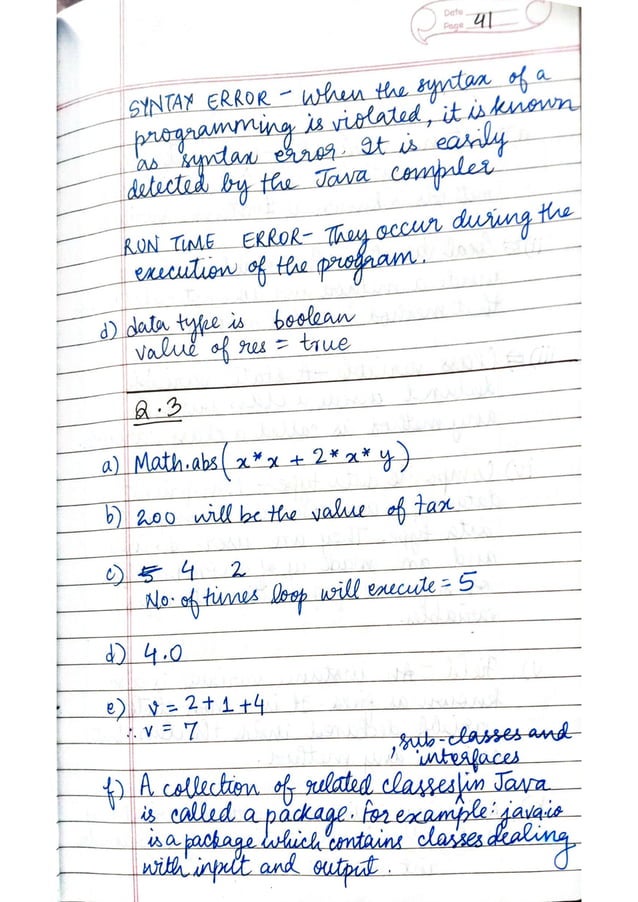 Date
Page 41
SYNTAX ERROR - When the syntax of a
programming is violated, it is known
as syntax error. It is easily
detected by the Java compiler
RUN TIME ERROR - They occur during the
execution of the program.
d) data type is boolean
value of res = true
Q.3
a) Math.abs(x*x + 2*x*y)
b) 200 will be the value of tax
c) 5 4 2
No. of times loop will execute = 5
d) 4.0
e) v = 2+1+4
∴ v = 7
, sub-classes and
interfaces
f) A collection of related classes in Java
is called a package. For example: java.io
is a package which contains classes dealing
with input and output.